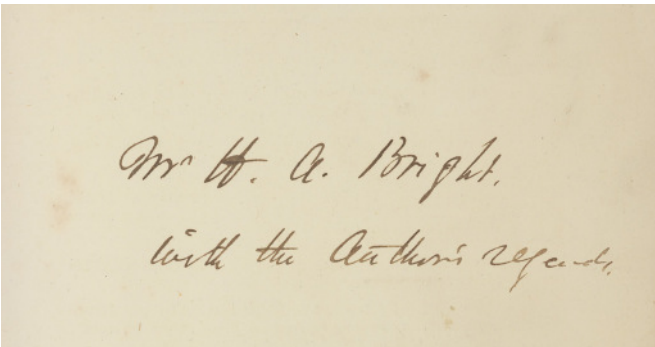 Mr H. A. Bright.
with the Author's regards.